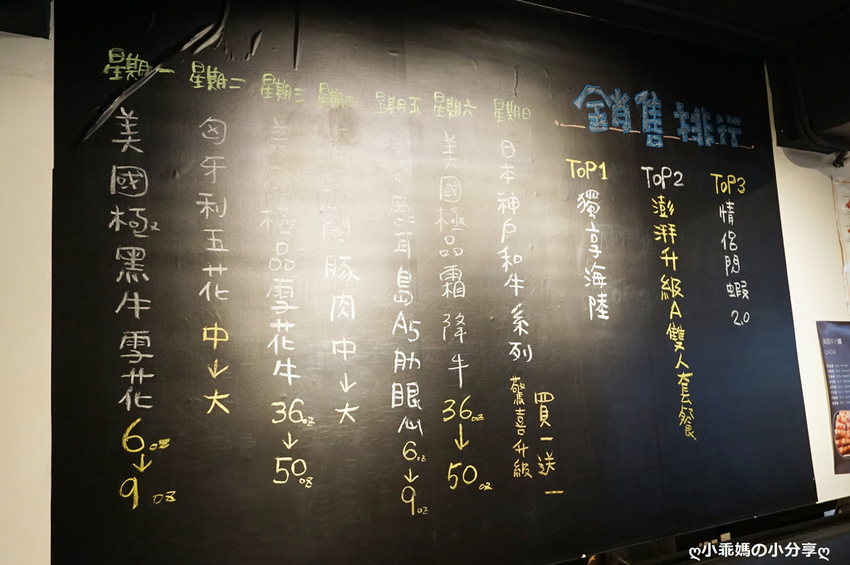 星期一
美國極黑牛雪花
6oz
↓
9oz
星期二
匈牙利五花
中↓大
星期三
極品雪花牛
36oz
↓
50oz
星期四
豚肉
中↓大
星期五
島A5肋眼心
6oz
↓
9oz
星期六
美國極品霜降牛
36oz
↓
50oz
星期日
日本神戶和牛系列
驚喜升級
買一送一
銷售排行
TOP1
獨享海陸
TOP2
澎湃升級A雙人套餐
TOP3
情侶閃蝦2.0
ღ小乖媽の小分享ღ